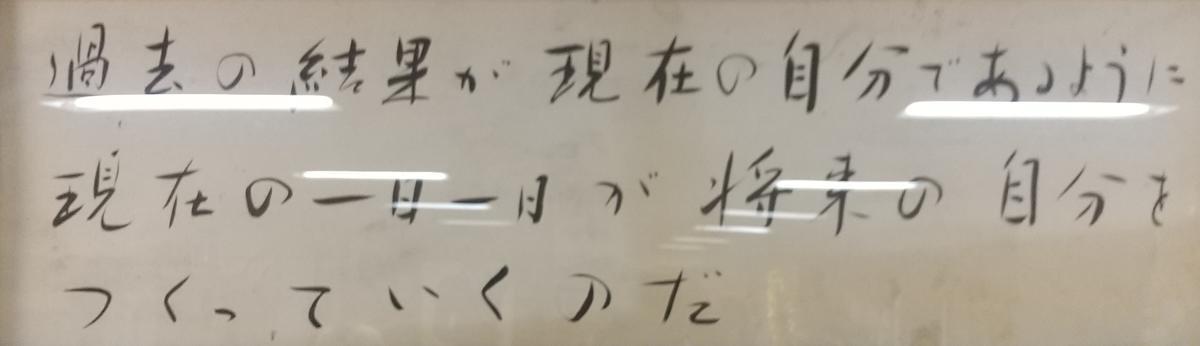 過去の結果が現在の自分であるように
現在の一日一日が将来の自分を
つくっていくのだ